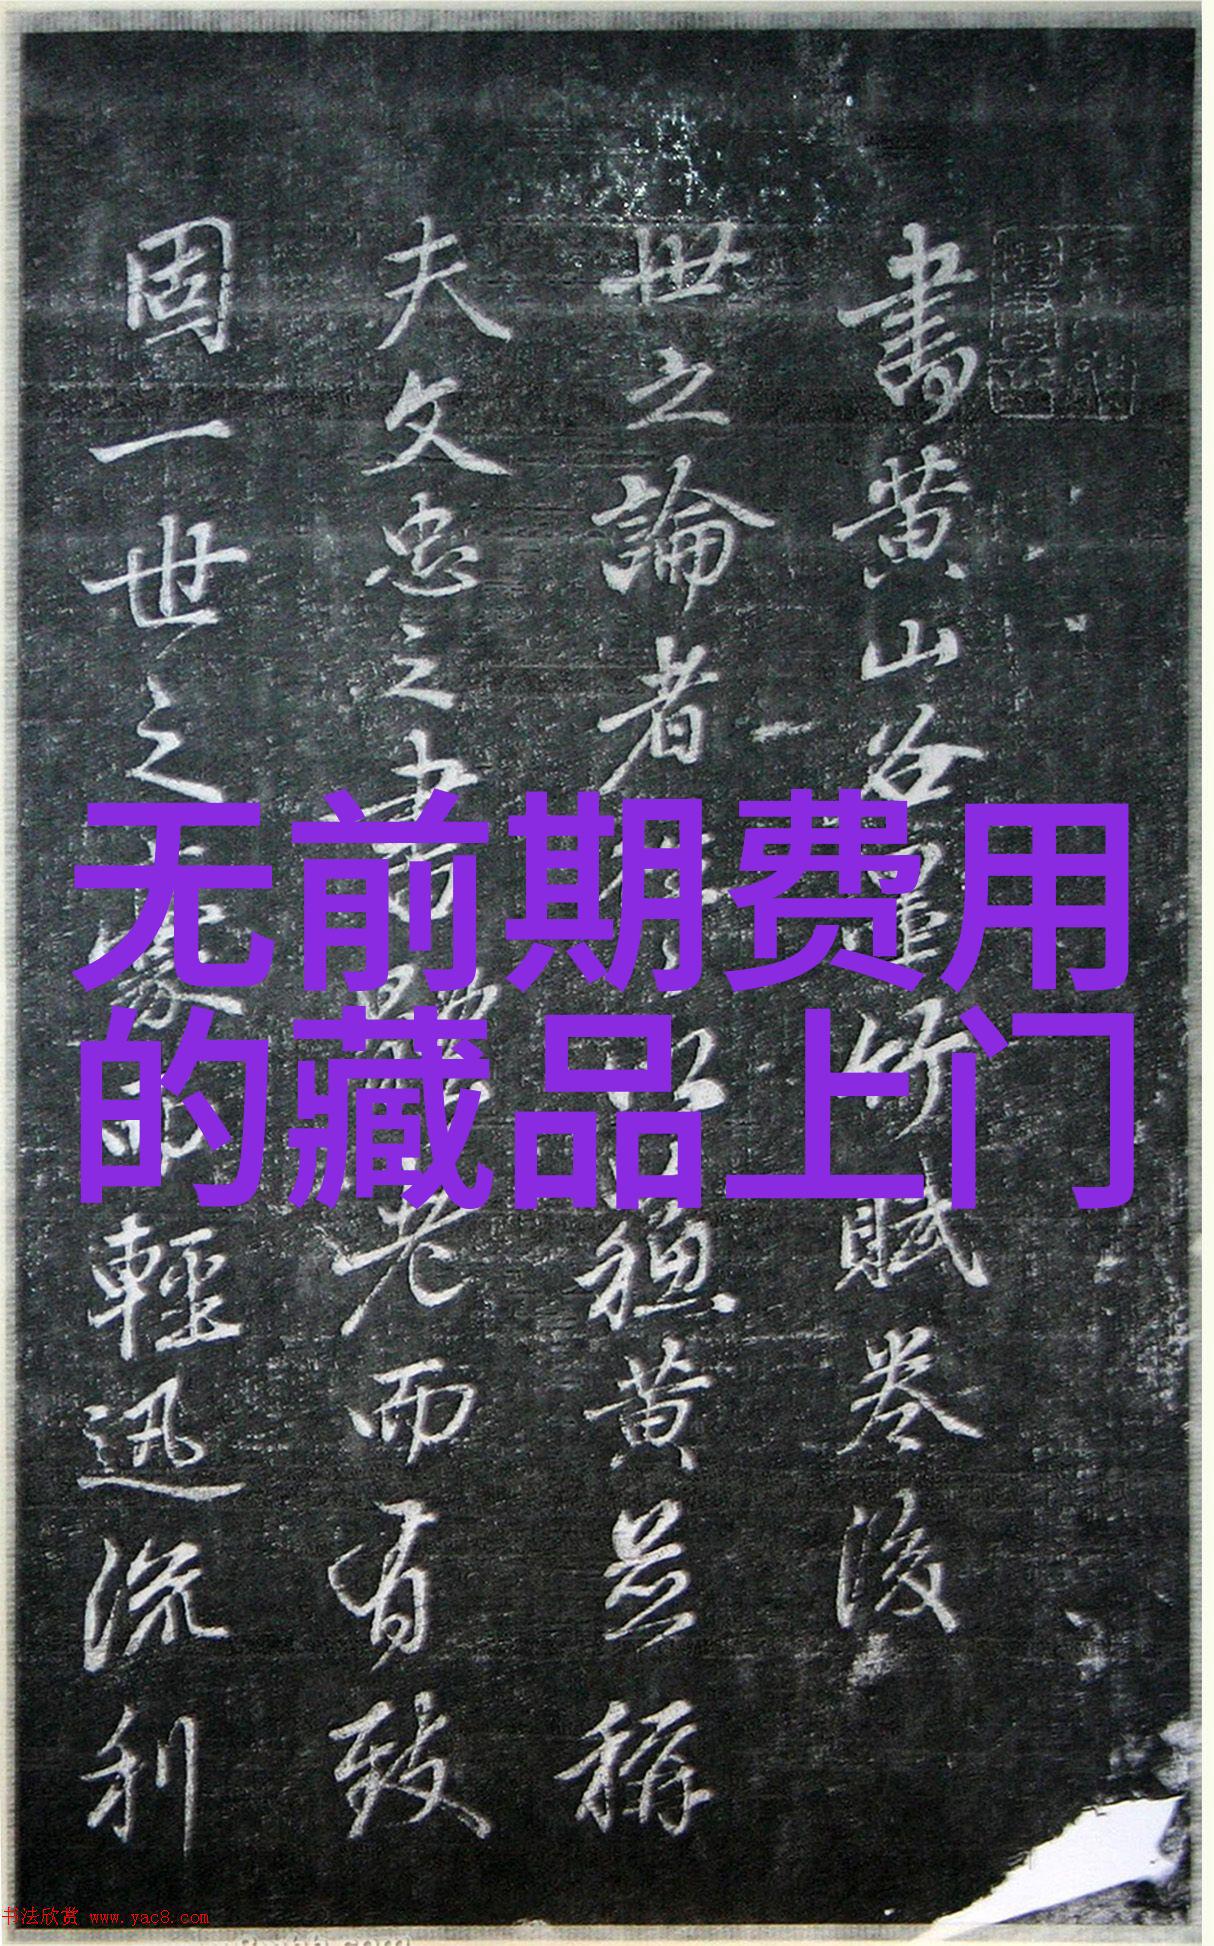 書黄山谷竹賦卷後
世之論者黄並稱
夫文忠之書體老而有致
固一世之豪而輕迅流利
无前期费用
的藏品上门
书法欣赏 www.yac8.com